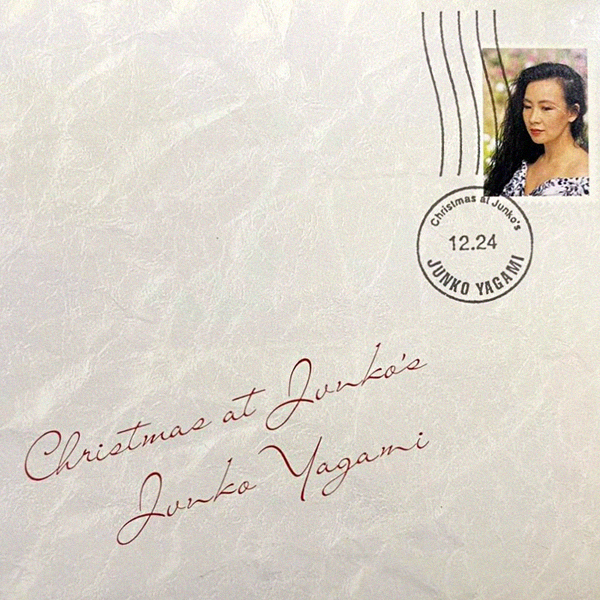 Christmas at Junko's
12.24
JUNKO YAGAMI
Christmas at Junko's
Junko Yagami